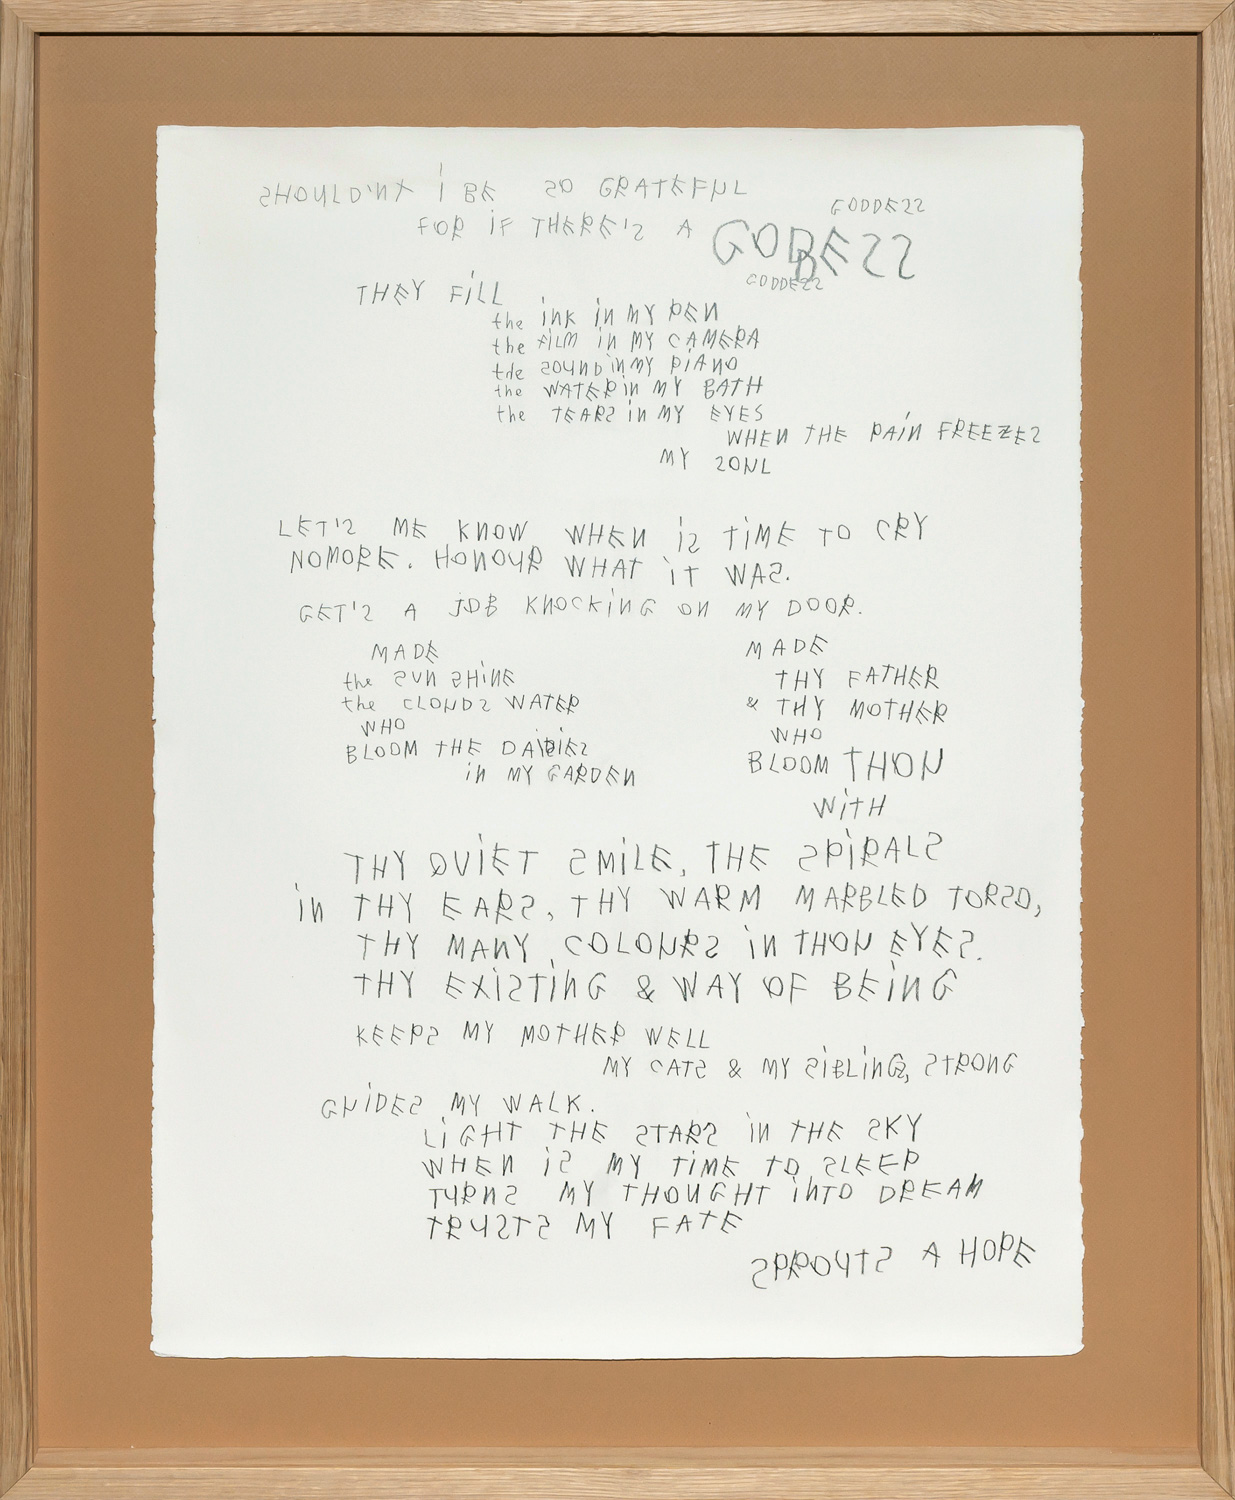 SHOULD'NT i BE SO GRATEFUL
FOR iF THERE'S A GODDESS
GODDESS
GODDESS
THEY FiLL
the iNK iN MY PEN
the FiLM iN MY CAMERA
the SOUND iN MY PiANO
the WATER iN MY BATH
the TEARS iN MY EYES
WHEN THE PAiN FREEZES
MY SOUL
LET'S ME KNOW WHEN iS TiME TO CRY
NOMORE. HONOUR WHAT iT WAS.
GET'S A JOB KNOCKiNG ON MY DOOR.
MADE
the SUN SHiNE
the CLOUDS WATER
WHO
BLOOM THE DAiSiES
iN MY GARDEN
MADE
THY FATHER
& THY MOTHER
WHO
BLOOM THOU
WiTH
THY QUiET SMiLE, THE SPiRALS
iN THY EARS, THY WARM MARBLED TORSO,
THY MANY COLOURS iN THOU EYES.
THY EXiSTiNG & WAY OF BEiNG
KEEPS MY MOTHER WELL
MY CATS & MY SiBLiNGS, STRONG
GUiDES MY WALK.
LiGHT THE STARS iN THE SKY
WHEN iS MY TiME TO SLEEP
TURNS MY THOUGHT iNTO DREAM
TRUSTS MY FATE
SPROUTS A HOPE